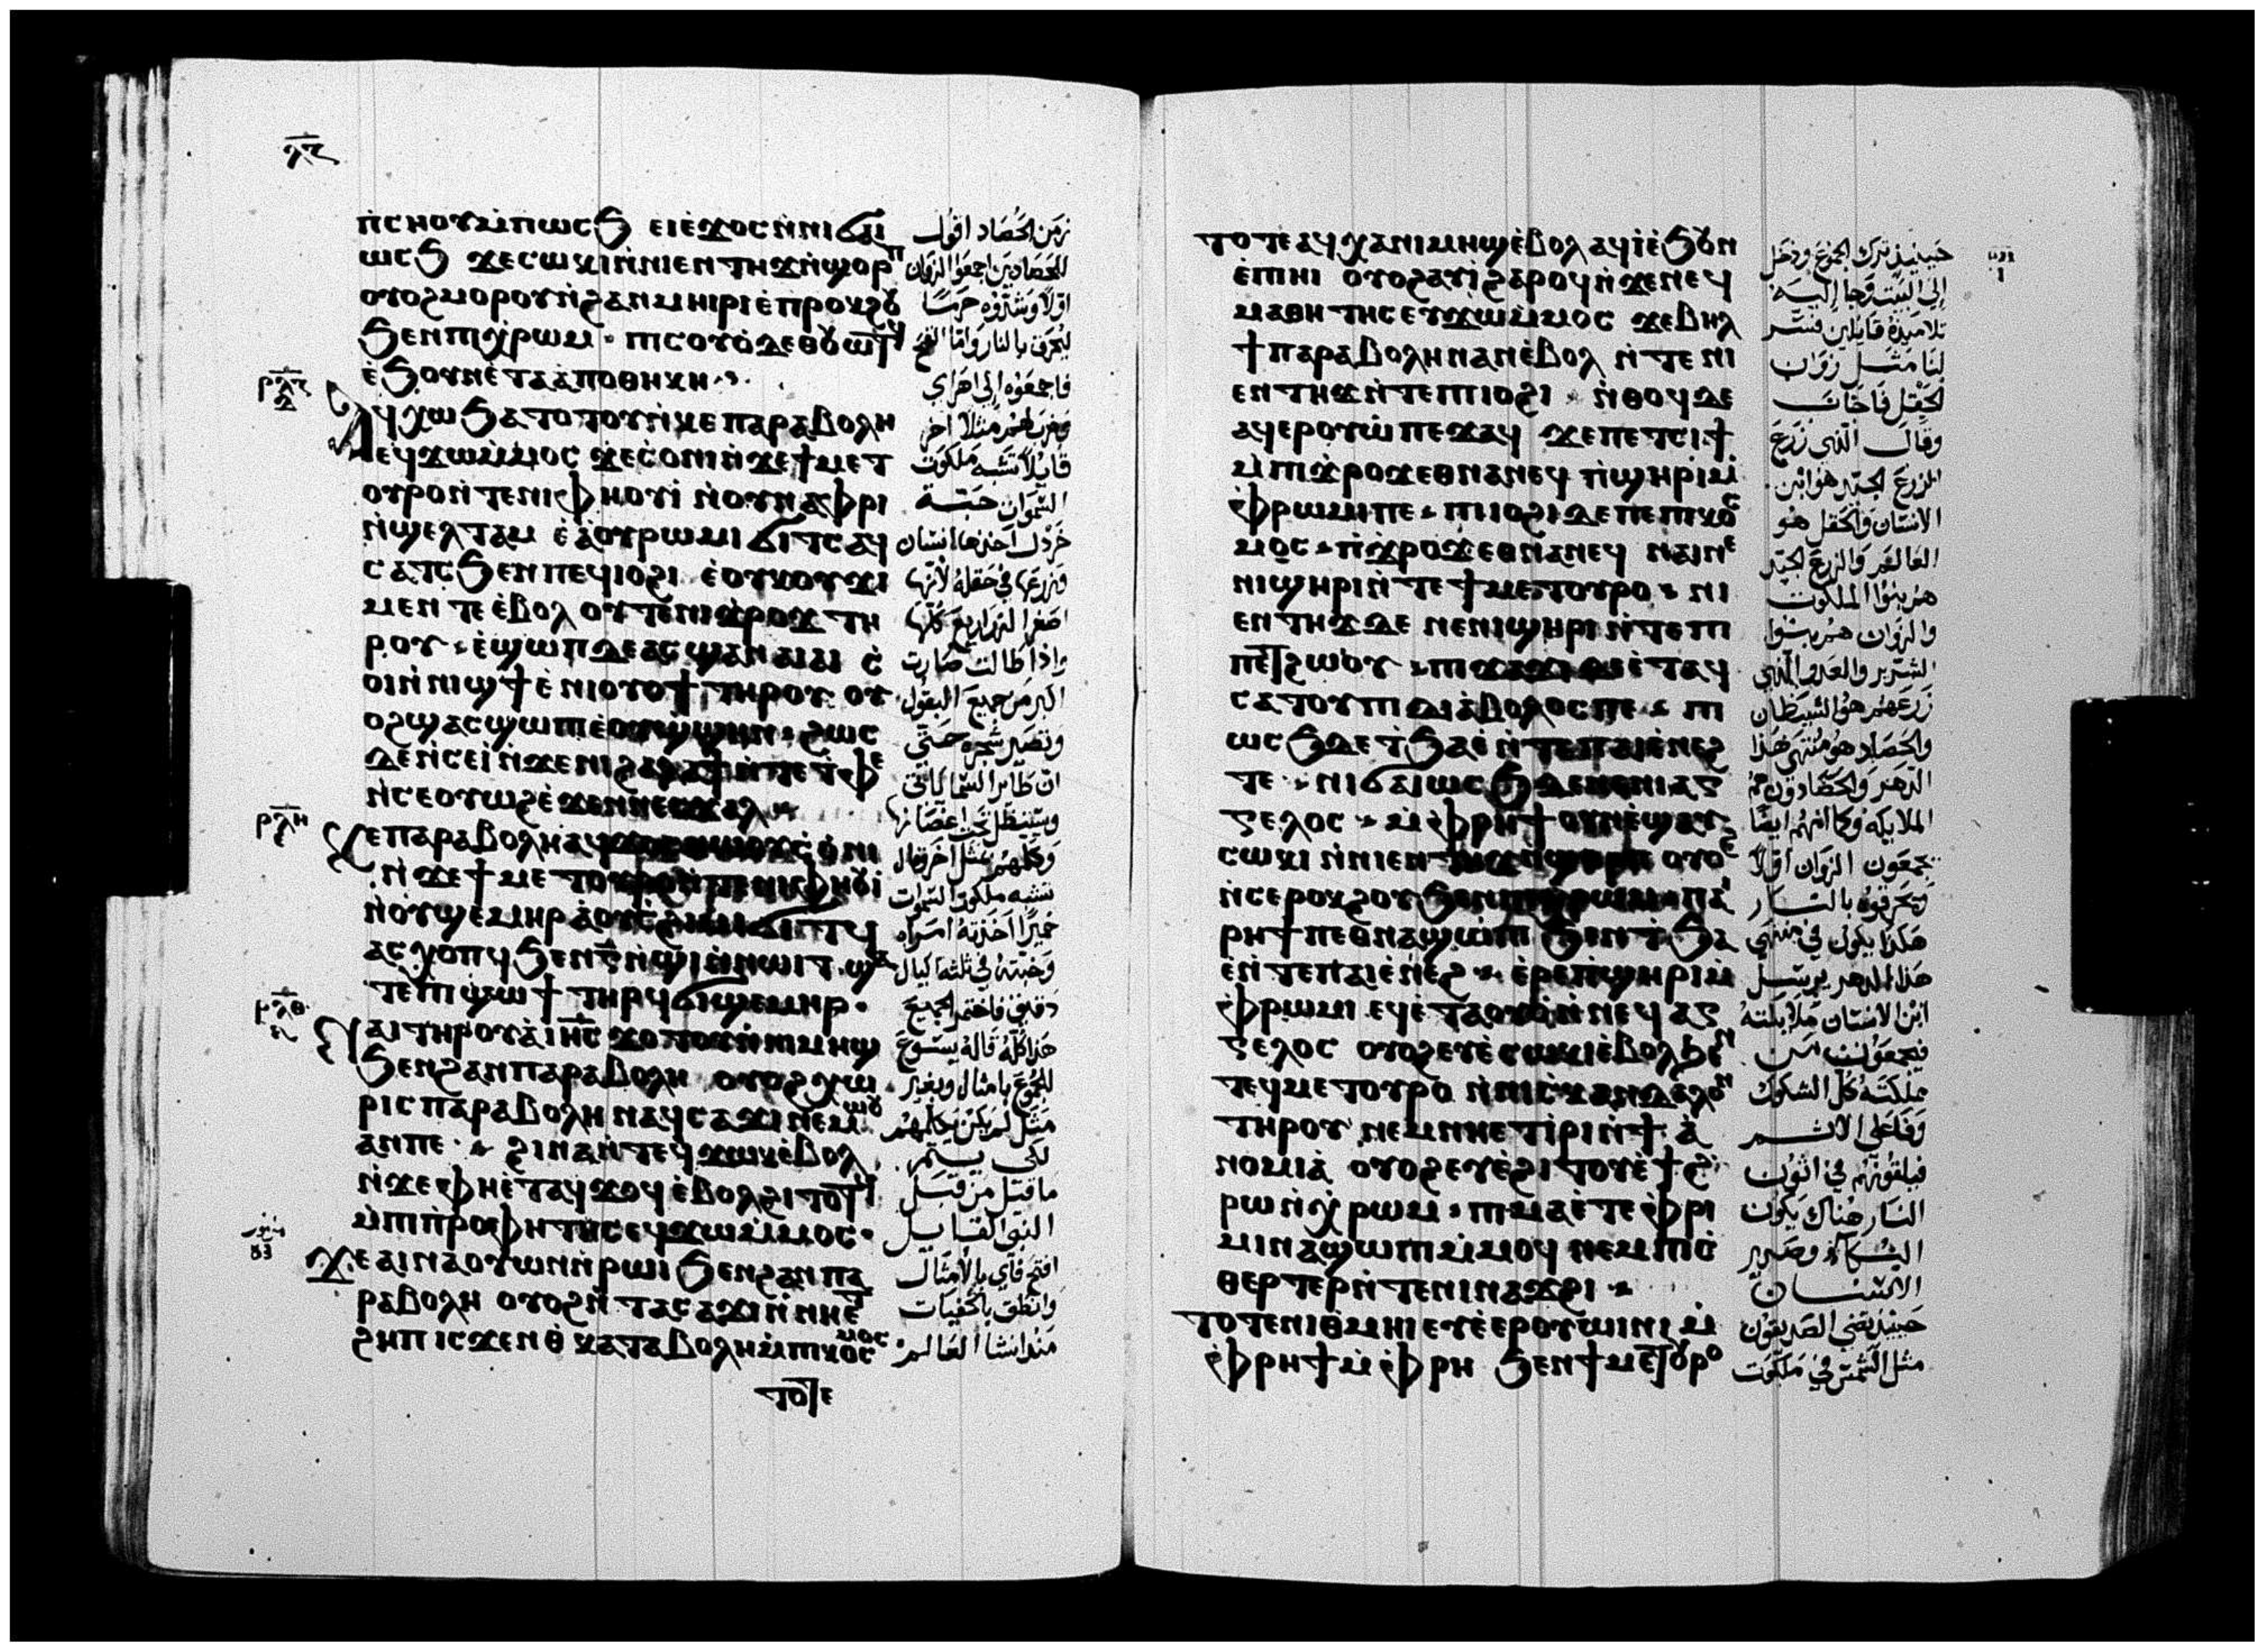 ⲗⲍ
ⲛ̀ⲥⲏⲟⲩⲙ̀ⲡⲱⲥϧ ⲉⲓⲉ̀ϫⲟⲥⲛ̀ⲛⲓϭⲁⲓ
ⲱⲥϧ ϫⲉⲥⲱⲕⲓⲛ̀ⲛⲓⲉⲛⲧⲏϫⲛ̀ϣⲟⲣⲡ
ⲟⲩⲟϩⲙⲟⲣⲟⲩⲛ̀ϩⲁⲛⲙⲏⲓⲣⲓⲉ̀ⲡⲣⲟⲕϩⲟⲩ
ϧⲉⲛⲡⲓⲭ̀ⲣⲱⲙ · ⲡⲓⲥⲟⲩⲟ̀ⲇⲉⲑⲟⲩⲱⲧϥ
ⲉ̀ϧⲟⲩⲛⲉ̀ⲧⲁⲁ̀ⲡⲟⲑⲏⲕⲏ
ⲣⲗⲍ
ⲁϥⲭⲱϧⲁⲧⲟⲧⲟⲩⲛ̀ⲕⲉⲡⲁⲣⲁⲃⲟⲗⲏ
ⲉϥϫⲱⲙ̀ⲙⲟⲥ ϫⲉⲥ̀ⲟⲛⲓⲛ̀ϫⲉϯⲙⲉⲧ
ⲟⲩⲣⲟⲛ̀ⲧⲉⲛⲓⲫⲏⲟⲩⲓ̀ ⲛ̀ⲟⲩⲛⲁⲫⲣⲓ
ⲛ̀ϣⲉⲗⲧⲁⲙ ⲉ̀ⲁ̀ⲟⲩⲣⲱⲙⲓ ϭⲓⲧⲥⲁϥ
ⲥⲁⲧⲥϧⲉⲛⲡⲉϥⲓⲟϩⲓ ⲉ̀ⲟⲩⲕⲟⲩϫⲓ
ⲙⲉⲛⲧⲉⲉ̀ⲃⲟⲗⲟⲩⲧⲉⲛⲓϫ̀ⲣⲟϫⲧⲏ
ⲣⲟⲩ · ⲉ̀ϣⲱⲡⲇⲉⲁⲥϣⲁⲛⲁⲓⲁⲓ ⲥ̀
ⲟⲓⲛ̀ⲛⲓϣϯⲉ̀ⲛⲓⲟⲩⲟϯ ⲧⲏⲣⲟⲩ ⲟⲩ
ⲟϩϣⲁⲥϣⲱⲡⲓⲉ̀ⲟⲩϣ̀ϣⲏⲛ · ϩⲱⲥ
ⲇⲉⲛ̀ⲥⲉⲓ̀ⲛ̀ϫⲉⲛⲓϩⲁⲗⲁϯⲛ̀ⲧⲉⲧ̀ⲫⲉ
ⲛ̀ⲥⲉⲟⲩⲱϩⲉ̀ϫⲉⲛⲛⲉⲥϫⲁⲗ
ⲣⲗⲏ
ⲕⲉⲡⲁⲣⲁⲃⲟⲗⲏⲁϥϫⲟⲥⲛⲱⲟⲩϫⲥ̀ⲟ̀ⲛⲓ
ⲛ̀ϫⲉϯⲙⲉⲧⲟⲩⲣⲟⲛ̀ⲧⲉⲛⲓⲫⲏⲟⲩⲓ̀
ⲛ̀ⲟⲩϣⲉⲙⲏⲣ ⲁ̀ⲟⲩⲥ̀ϩⲓⲙⲓϭⲓⲧϥ
ⲁⲥⲭⲟⲡϥϧⲉⲛⲅ̅ⲛ̀ϣⲓⲛ̀ⲛⲱⲓⲧ · ϣⲁ
ⲧⲉϥϭⲓϣⲉⲙⲏⲣ ⲧⲏⲣϥ
ⲣⲗⲑ
ⲛⲁⲓⲧⲏⲣⲟⲩⲁ̀ⲓⲏⲥ ϫⲟⲧⲟⲩⲛ̀ⲛⲓⲙⲏϣ
ϧⲉⲛϩⲁⲛⲡⲁⲣⲁⲃⲟⲗⲏ ⲟⲩⲟϩⲭⲱ
ⲣⲓⲥⲡⲁⲣⲁⲃⲟⲗⲏⲛⲁϥⲥⲁϫⲓⲛⲉⲙⲱⲟⲩ
ⲁⲛⲡⲉ · ϩⲓⲛⲁⲛ̀ⲧⲉϥϫⲱⲕⲉ̀ⲃⲟⲗ
ⲛ̀ϫⲉⲫⲏⲉ̀ⲧⲁϥϫⲟϥⲉ̀ⲃⲟⲗϩⲓⲧⲟⲧϥ
ⲙ̀ⲡⲓⲡ̀ⲣⲟⲫⲏⲧⲏⲥⲉϥϫⲱⲙ̀ⲙⲟⲥ ·
ϫⲉⲁⲓⲛⲁⲟⲩⲱⲛⲛ̀ⲣⲱⲓϧⲉⲛϩⲁⲛⲡⲁ
ⲣⲁⲃⲟⲗⲏ ⲟⲩⲟϩⲛ̀ⲧⲁⲥⲁϫⲓⲛ̀ⲛⲏⲉⲧ
ϩⲏⲡⲓⲥϫⲉⲛⲑⲕⲁⲧⲁⲃⲟⲗⲏⲙ̀ⲡⲓⲕⲟⲥⲙⲟⲥ
ⲧⲟⲧⲉ
زمن الحصاد اقول
للحصادين اجمعوا الزوان
اولا وشدوه حزما
ليحرق بالنار واما القمح
فاجمعوه الى اهراي
وضرب لهم مثلا اخر
قايلا تشبه ملكوت
السموات حبة
خردل اخذها انسان
وزرعها في حقله لانها
اصغر الزراريع كلها
واذا طالت صارت
اكبر من جميع البقول
وتصير شجره حتى
ان طاير السما ياتي
ويستظل تحت اغصانها
وكلمهم بمثل اخر قال
تشبه ملكوت السموات
خميرا اخذته امراه
وخبته في ثلثه اكيال
دقيق فاختمر الجميع
هذا كله قاله يسوع
للجموع بامثال وبغير
مثل لم يكن يكلمهم
لكي يتم
ما قيل من قبل
النبي القايل
افتح فاي بالامثال
وانطق بالخفيات
منذ انشا العالم
ⲧⲟⲧⲉⲁϥⲭⲁⲛⲓⲙⲏϣⲉ̀ⲃⲟⲗ ⲁϥⲓ̀ⲉ̀ϧⲟⲩⲛ
ⲉ̀ⲡⲏⲓ ⲟⲩⲟϩⲁⲩⲓ̀ϩⲁⲣⲟϥⲛ̀ϫⲉⲛⲉϥ
ⲙⲁⲑⲏⲧⲏⲥⲉⲩϫⲱⲙ̀ⲙⲟⲥ ϫⲉⲃⲏⲗ
ϯⲡⲁⲣⲁⲃⲟⲗⲏⲛⲁⲛⲉ̀ⲃⲟⲗ ⲛ̀ⲧⲉⲛⲓ
ⲉⲛⲧⲏϫⲛ̀ⲧⲉⲡⲓⲓⲟϩⲓ · ⲛ̀ⲑⲟϥⲇⲉ
ⲁϥⲉⲣⲟⲩⲱ̀ⲡⲉϫⲁϥ ϫⲉⲡⲉⲧⲥⲓϯ
ⲙ̀ⲡⲓϫ̀ⲣⲟϫⲉⲑⲛⲁⲛⲉϥ ⲡ̀ϣⲏⲣⲓⲙ̀
ⲫ̀ⲣⲱⲙⲓⲡⲉ · ⲡⲓⲓⲟϩⲓⲇⲉⲡⲉⲡⲓⲕⲟⲥ
ⲙⲟⲥ · ⲡⲓϫ̀ⲣⲟϫⲉⲑⲛⲁⲛⲉϥ ⲛⲁⲓⲛⲉ
ⲛⲓϣⲏⲣⲓⲛ̀ⲧⲉϯⲙⲉⲧⲟⲩⲣⲟ · ⲛⲓ
ⲉⲛⲧⲏϫⲇⲉ ⲛⲉⲛⲓϣⲏⲣⲓⲛ̀ⲧⲉⲡⲓ
ⲡⲉⲧϩⲱⲟⲩ · ⲡⲓϫⲁϫⲓⲇⲉⲉ̀ⲧⲁϥ
ⲥⲁⲧⲟⲩⲡⲓⲇⲓⲁ̀ⲃⲟⲗⲟⲥⲡⲉ · ⲡⲓ
ⲱⲥϧⲇⲉⲧ̀ϧⲁⲉ̀ⲛ̀ⲧⲉⲡⲁⲓⲉ̀ⲛⲉϩ
ⲧⲉ · ⲛⲓϭⲁⲓⲱⲥϧⲇⲉⲛⲉⲛⲓⲁⲅ
ⲅⲉⲗⲟⲥ · ⲙ̀ⲫ̀ⲣⲏϯⲟⲩⲛⲉ̀ϣⲁⲩ
ⲥⲱⲕⲓ ⲛ̀ⲛⲓⲉⲛⲧⲏϫⲛ̀ϣⲟⲣⲡ ⲟⲩⲟϩ
ⲛ̀ⲥⲉⲣⲟⲕϩⲟⲩ ϧⲉⲛⲡⲓⲭ̀ⲣⲱⲙ · ⲡⲁⲓ
ⲣⲏϯⲡⲉⲑⲛⲁϣⲱⲡⲓ ϧⲉⲛⲧ̀ϧⲁ
ⲉ̀ⲛ̀ⲧⲉⲡⲁⲓⲉ̀ⲛⲉϩ · ⲉ̀ⲣⲉⲡ̀ϣⲏⲣⲓⲙ̀
ⲫ̀ⲣⲱⲙⲓ ⲉϥⲉ̀ⲧⲁⲟⲩⲟ̀ⲛ̀ⲛⲉϥⲁⲅ
ⲅⲉⲗⲟⲥ ⲟⲩⲟϩⲉⲩⲉ̀ⲥⲱⲕⲓⲉ̀ⲃⲟⲗϧⲉⲛ
ⲧⲉϥⲙⲉⲧⲟⲩⲣⲟ ⲛ̀ⲛⲓⲥ̀ⲕⲁⲛⲇⲁⲗⲟⲛ
ⲧⲏⲣⲟⲩ ⲛⲉⲙⲛⲏⲉⲧⲓ̀ⲣⲓⲛ̀ϯⲁ̀
ⲛⲟⲙⲓⲁ̀ ⲟⲩⲟϩⲉⲩⲉ̀ϩⲓⲧⲟⲩⲉ̀ϯϩ
ⲣⲱⲛ̀ⲭ̀ⲣⲱⲙ · ⲡⲓⲙⲁⲉ̀ⲧⲉⲫ̀ⲣⲓ
ⲙⲓⲛⲁϣⲱⲡⲓⲙ̀ⲙⲟϥ ⲛⲉⲙⲡⲓⲥ̀
ⲑⲉⲣⲧⲉⲣⲛ̀ⲧⲉⲛⲓⲛⲁϫϩⲓ
ⲧⲟⲧⲉⲛⲓⲑ̀ⲙⲏⲓⲉⲩⲉ̀ⲉⲣⲟⲩⲱⲓⲛⲓ ⲙ̀
ⲫ̀ⲣⲏϯⲙ̀ⲫ̀ⲣⲏ ϧⲉⲛϯⲙⲉⲧⲟⲩⲣⲟ
حينيذ ترك الجموع ودخل
الى البيت وجا اليه
تلاميذه قايلين فسر
لنا مثل زوان
الحقل فاجاب
وقال الذي زرع
الزرع الجيد هو ابن
الانسان والحقل هو
العالم والزرع الجيد
هم بنوا الملكوت
والزوان هم بنوا
الشرير والعدو الذي
زرعهم هو الشيطان
والحصاد هو منتهى هذا
الدهر والحصادون هم
الملايكه وكما انهم ايضا
يجمعون الزوان اولا
ويحرقوه بالنار
هكذا يكون في منتهى
هذا الدهر يرسل
ابن الانسان ملايكته
فيجمعون من
مملكته كل الشكوك
وفاعلى الاثم
فيلقونهم في اتون
النار هناك يكون
البكاء وصرير
الاسنان
حينيذ يضي الصديقون
مثل الشمس في ملكوت